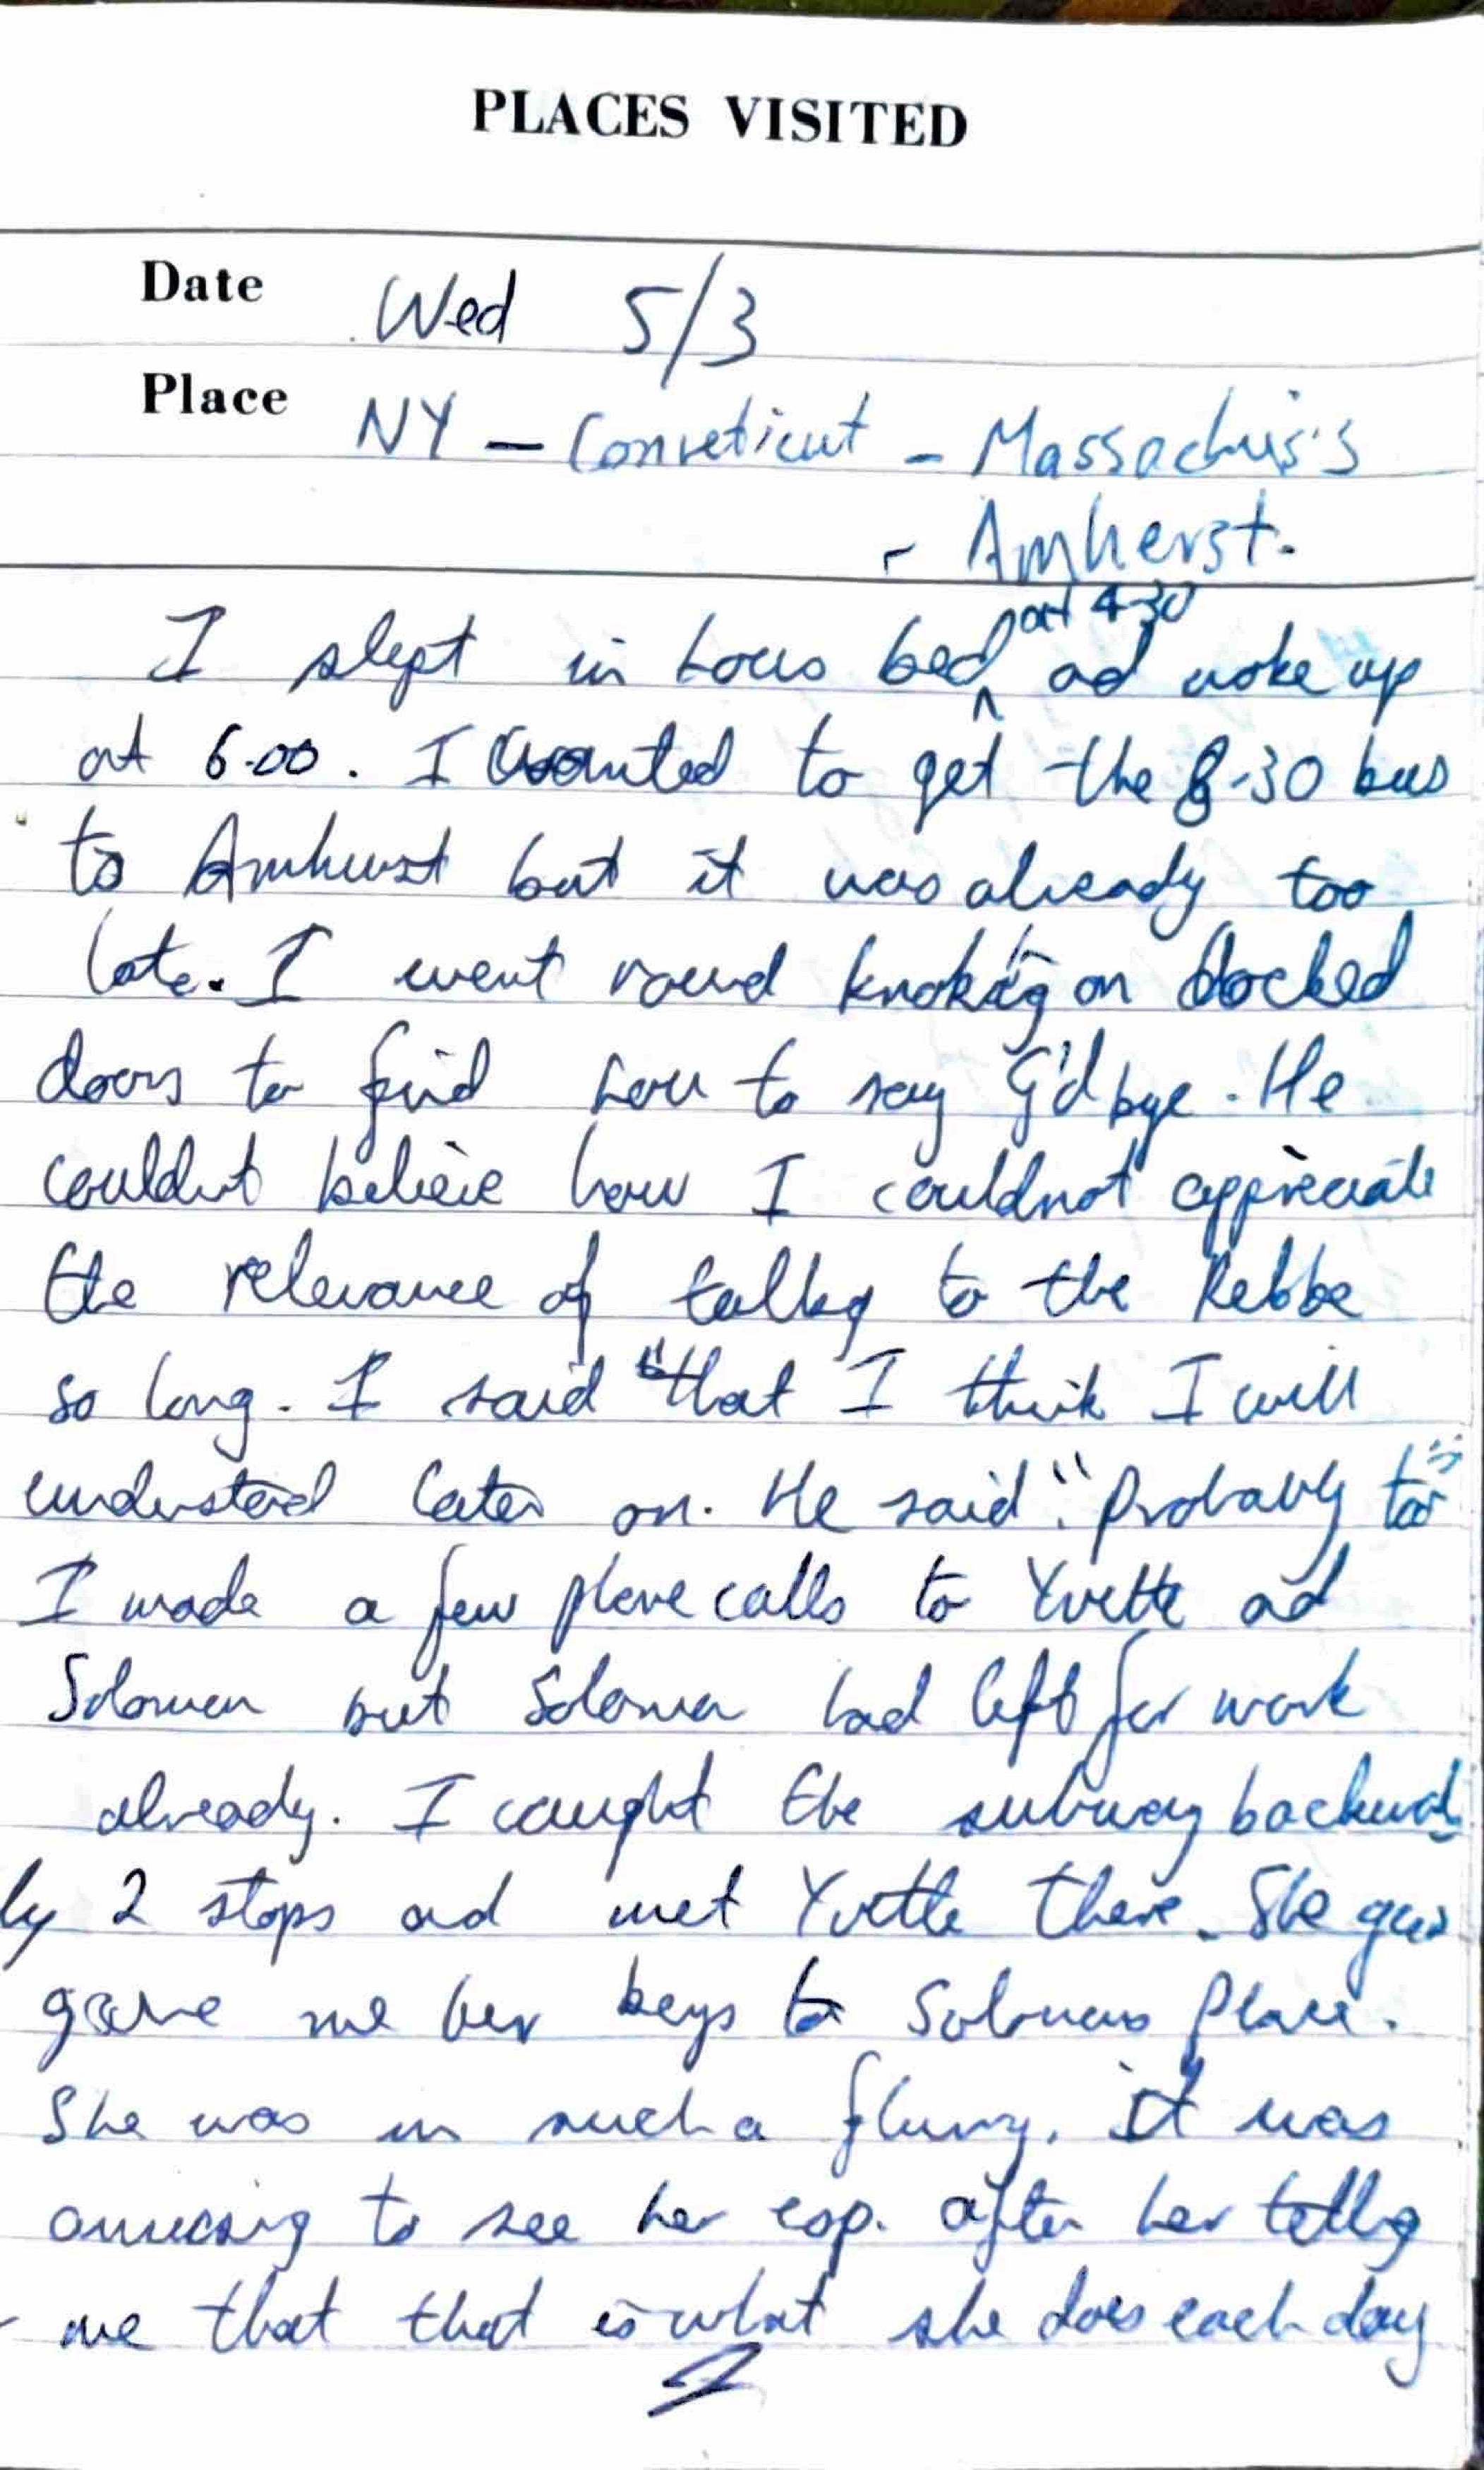 PLACES VISITED
Date Wed 5/3
Place NY - Conneticut - Massachus's
- Amherst.
I slept in Lous bed ^at 4-30 ad woke up
at 6.00. I wanted to get the 8-30 bus
to Amhurst but it was already too
late. I went round knoking on locked
doors to find Lou to say G'd bye. He
couldnt believe how I couldnot appreciate
the relevance of talkg to the Rebbe
so long. I said "that I think I will
understand later on. He said "Probably too"
I made a few phone calls to Yvette ad
Solomon but Solomon had left for work
already. I caught the subway backward
ly 2 stops ad met Yvette there. She
gave me her keys to Solomons Place.
She was in such a flurry. It was
amusing to see her esp. after her tellg
me that that is what she does each day